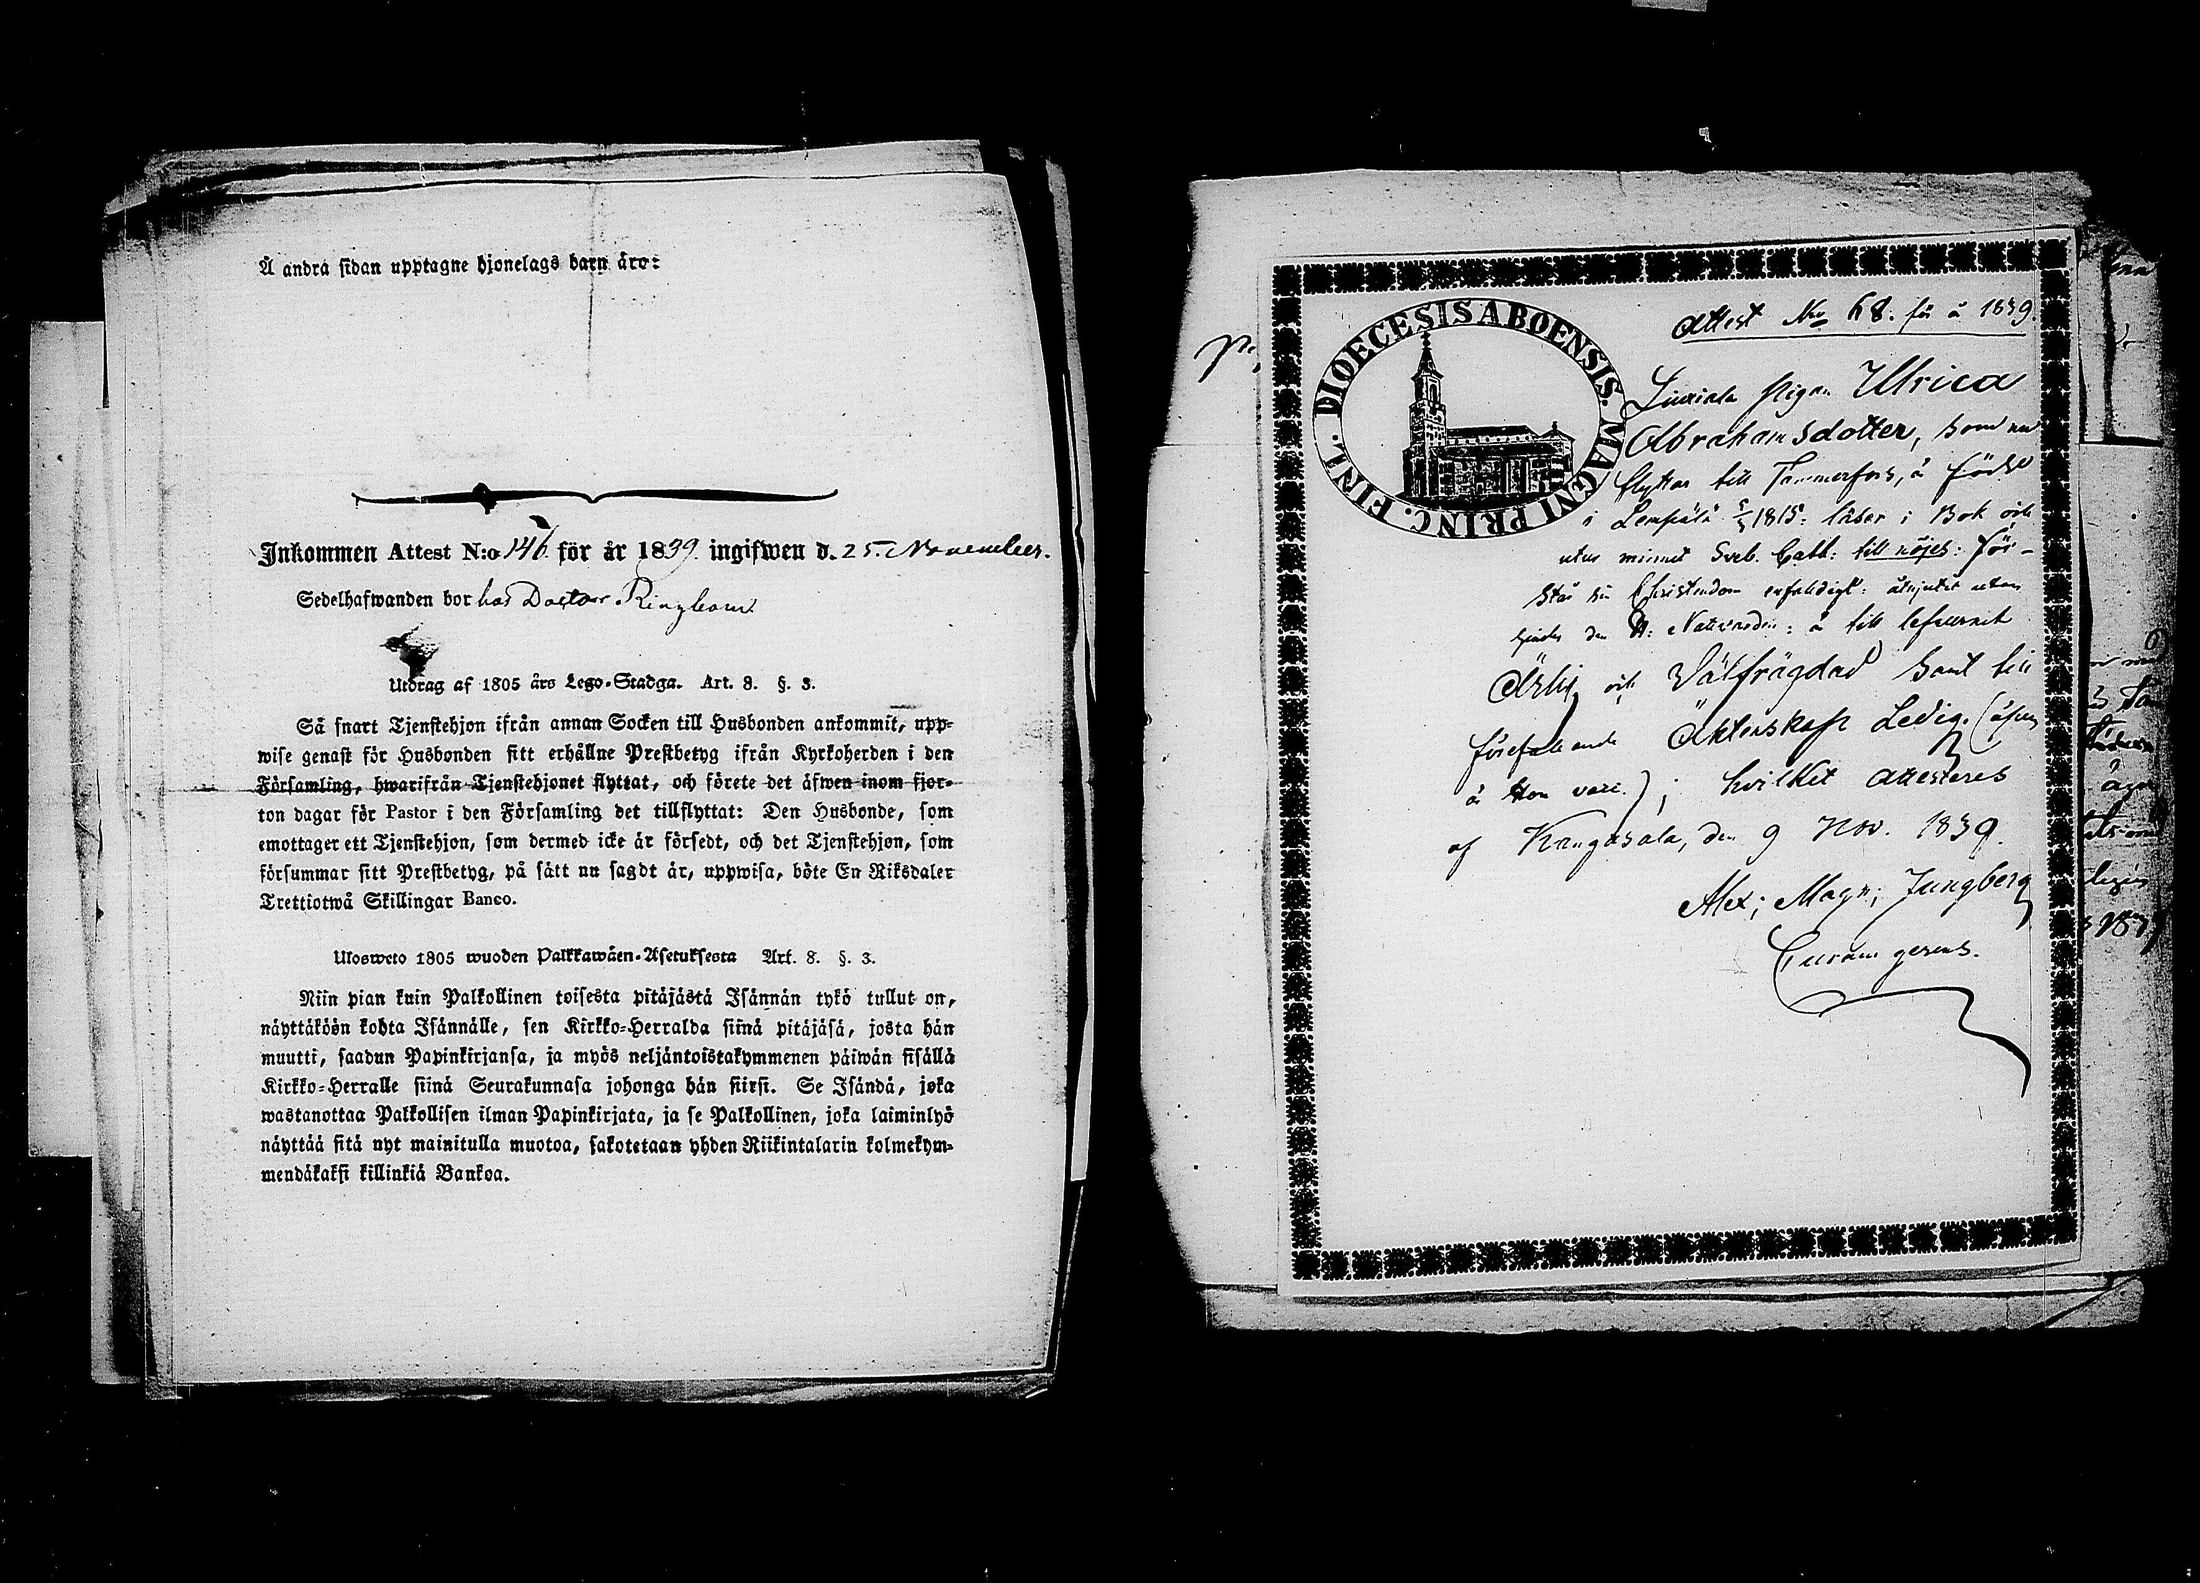 Å andra sidan upptagne hjonelags barn äro:
Inkommen Attest N:o 146 för år 1839. ingifwen d. 25. November.
Sedelhafwanden bor hos Doctor Ringbom
Utdrag af 1805 års Lego-Stadga. Art. 8. §. 3.
Så snart Tjenstehjon ifrån annan Socken till Husbonden ankommit, upp-
wise genast för Husbonden sitt erhållne Prestbetyg ifrån Kyrkoherden i den
Församling, hwarifrån Tjenstehjonet flyttat, och förete det äfwen inom fjor-
ton dagar för Pastor i den Församling det tillflyttat: Den Husbonde, som
emottager ett Tjenstehjon, som dermed icke är försedt, och det Tjenstehjon, som
försummar sitt Prestbetyg, på sätt nu sagdt är, uppwisa, böte En Riksdaler
Trettiotwå Skillingar Banco.
Ulosweto 1805 wuoden Palkkawäen-Asetuksesta Art. 8. §. 3.
Niin pian kuin Palkollinen toisesta pitäjästä Isännän tykö tullut on,
näyttäköön kohta Isännälle, sen Kirkko-Herralda siinä pitäjäsä, josta hän
muutti, saadun Papinkirjansa, ja myös neljäntoistakymmenen päiwän sisällä
Kirkko-Herralle siinä Seurakunnasa johonga hän siirsi. Se Isändä, joka
wastanottaa Palkollisen ilman Papinkirjata, ja se Palkollinen, joka laiminlyö
näyttää sitä nyt mainitulla muotoa, sakotetaan yhden Riikintalarin kolmekym-
mendäkaksi killinkiä Bankoa.
DIOECESIS ABOENSIS. MAGNI PRINC. FINL.
Attest No 68. för å 1839.
Pigan Ulrica
Abrahamsdotter, som nu
flyttar till Tammerfors, ä född
i Lempälä 1815: läser i Bok och
utur minnet Sveb. Cat: till nöjes: För-
står sin Christendom enfaldigt: åtnjutit utan
hinder den H: Nattvarden: ä till lefvernet
Ärlig och Välfrägdad samt till
förefallande Äktenskap Ledig. (äfven
ä Hon vacc.); hvilket attesteres
af Kangasala, den 9 Nov. 1839.
Alex; Magn; Jungberg
Curam gerens.